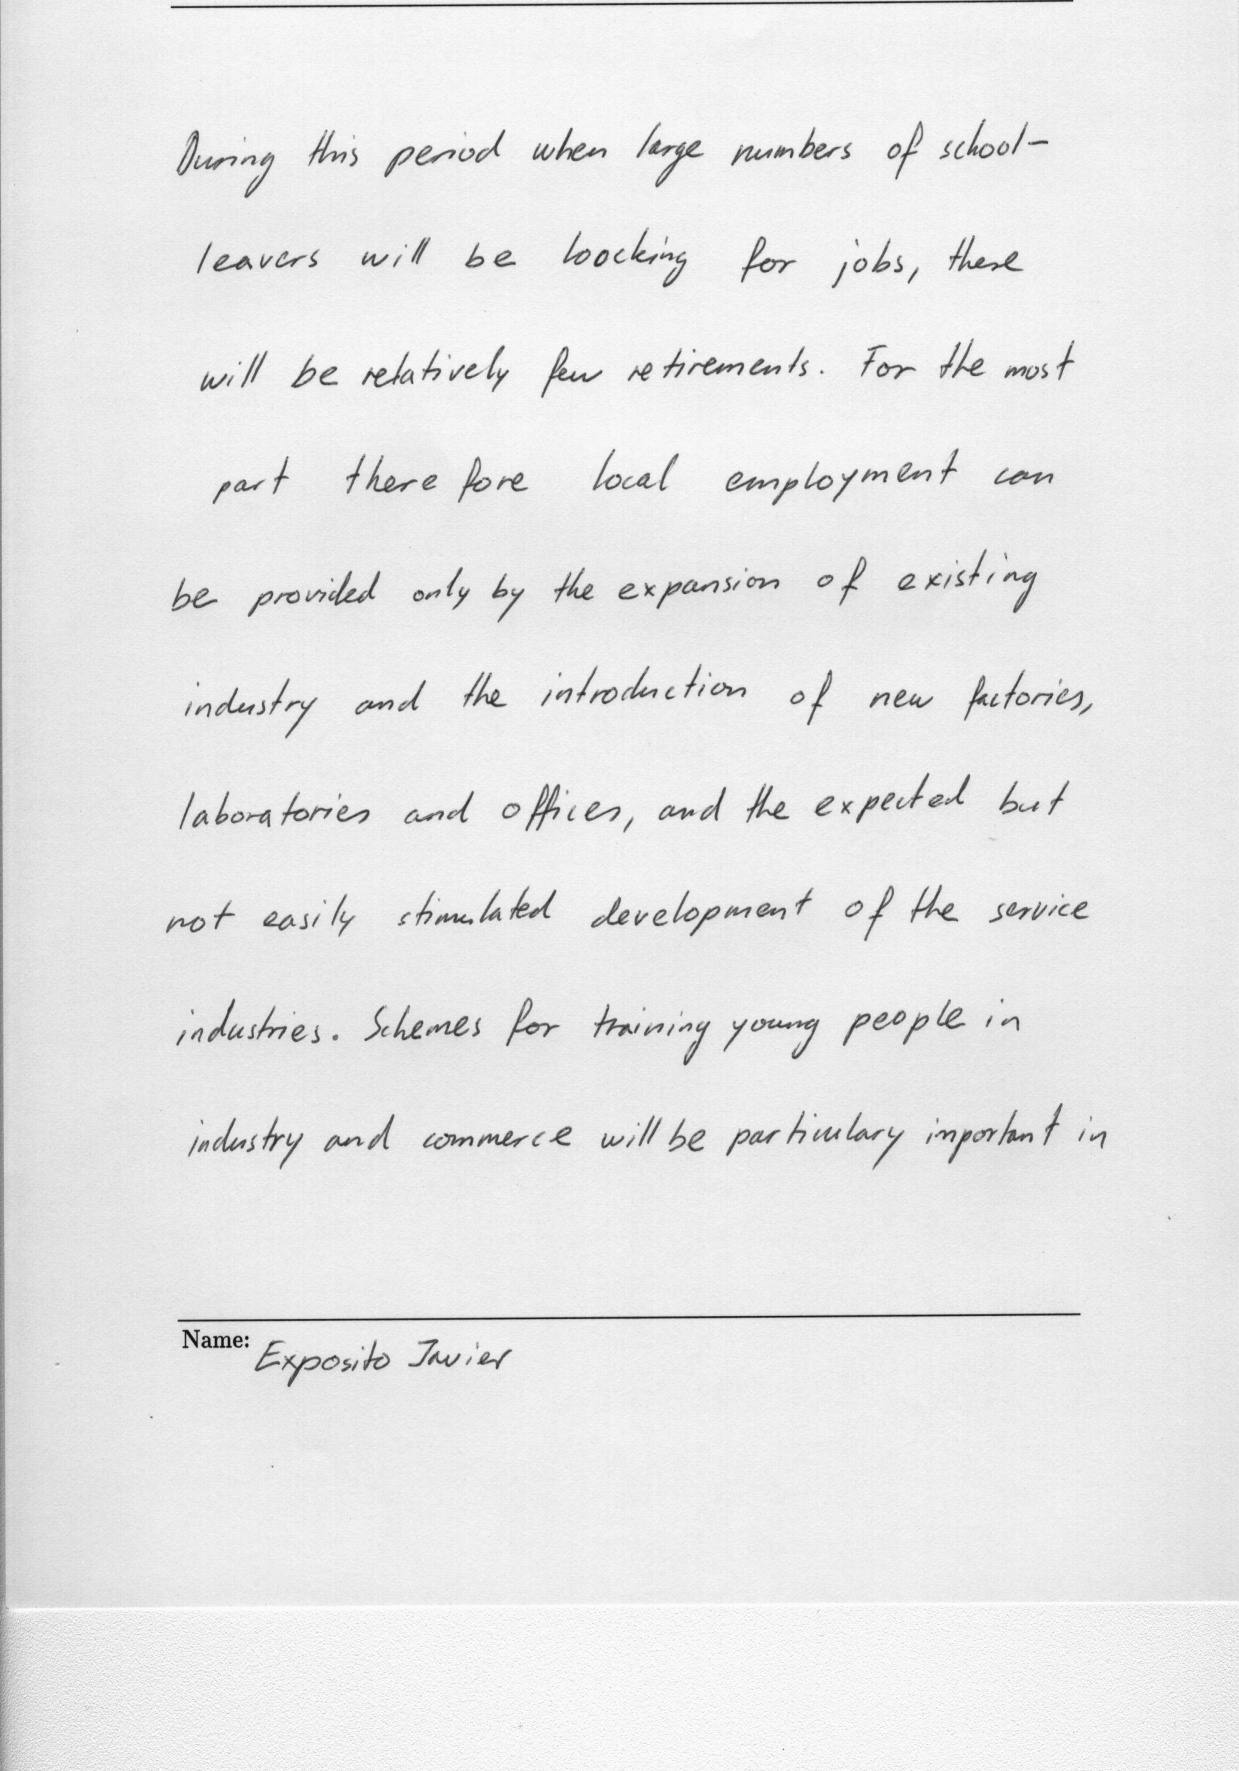 During this period when large numbers of school-
leavers will be loocking for jobs, there
will be relatively few retirements. For the most
part therefore local employment can
be provided only by the expansion of existing
industry and the introduction of new factories,
laboratories and offices, and the expected but
not easily stimulated development of the service
industries. Schemes for training young people in
industry and commerce will be particulary important in
Name: Exposito Javier